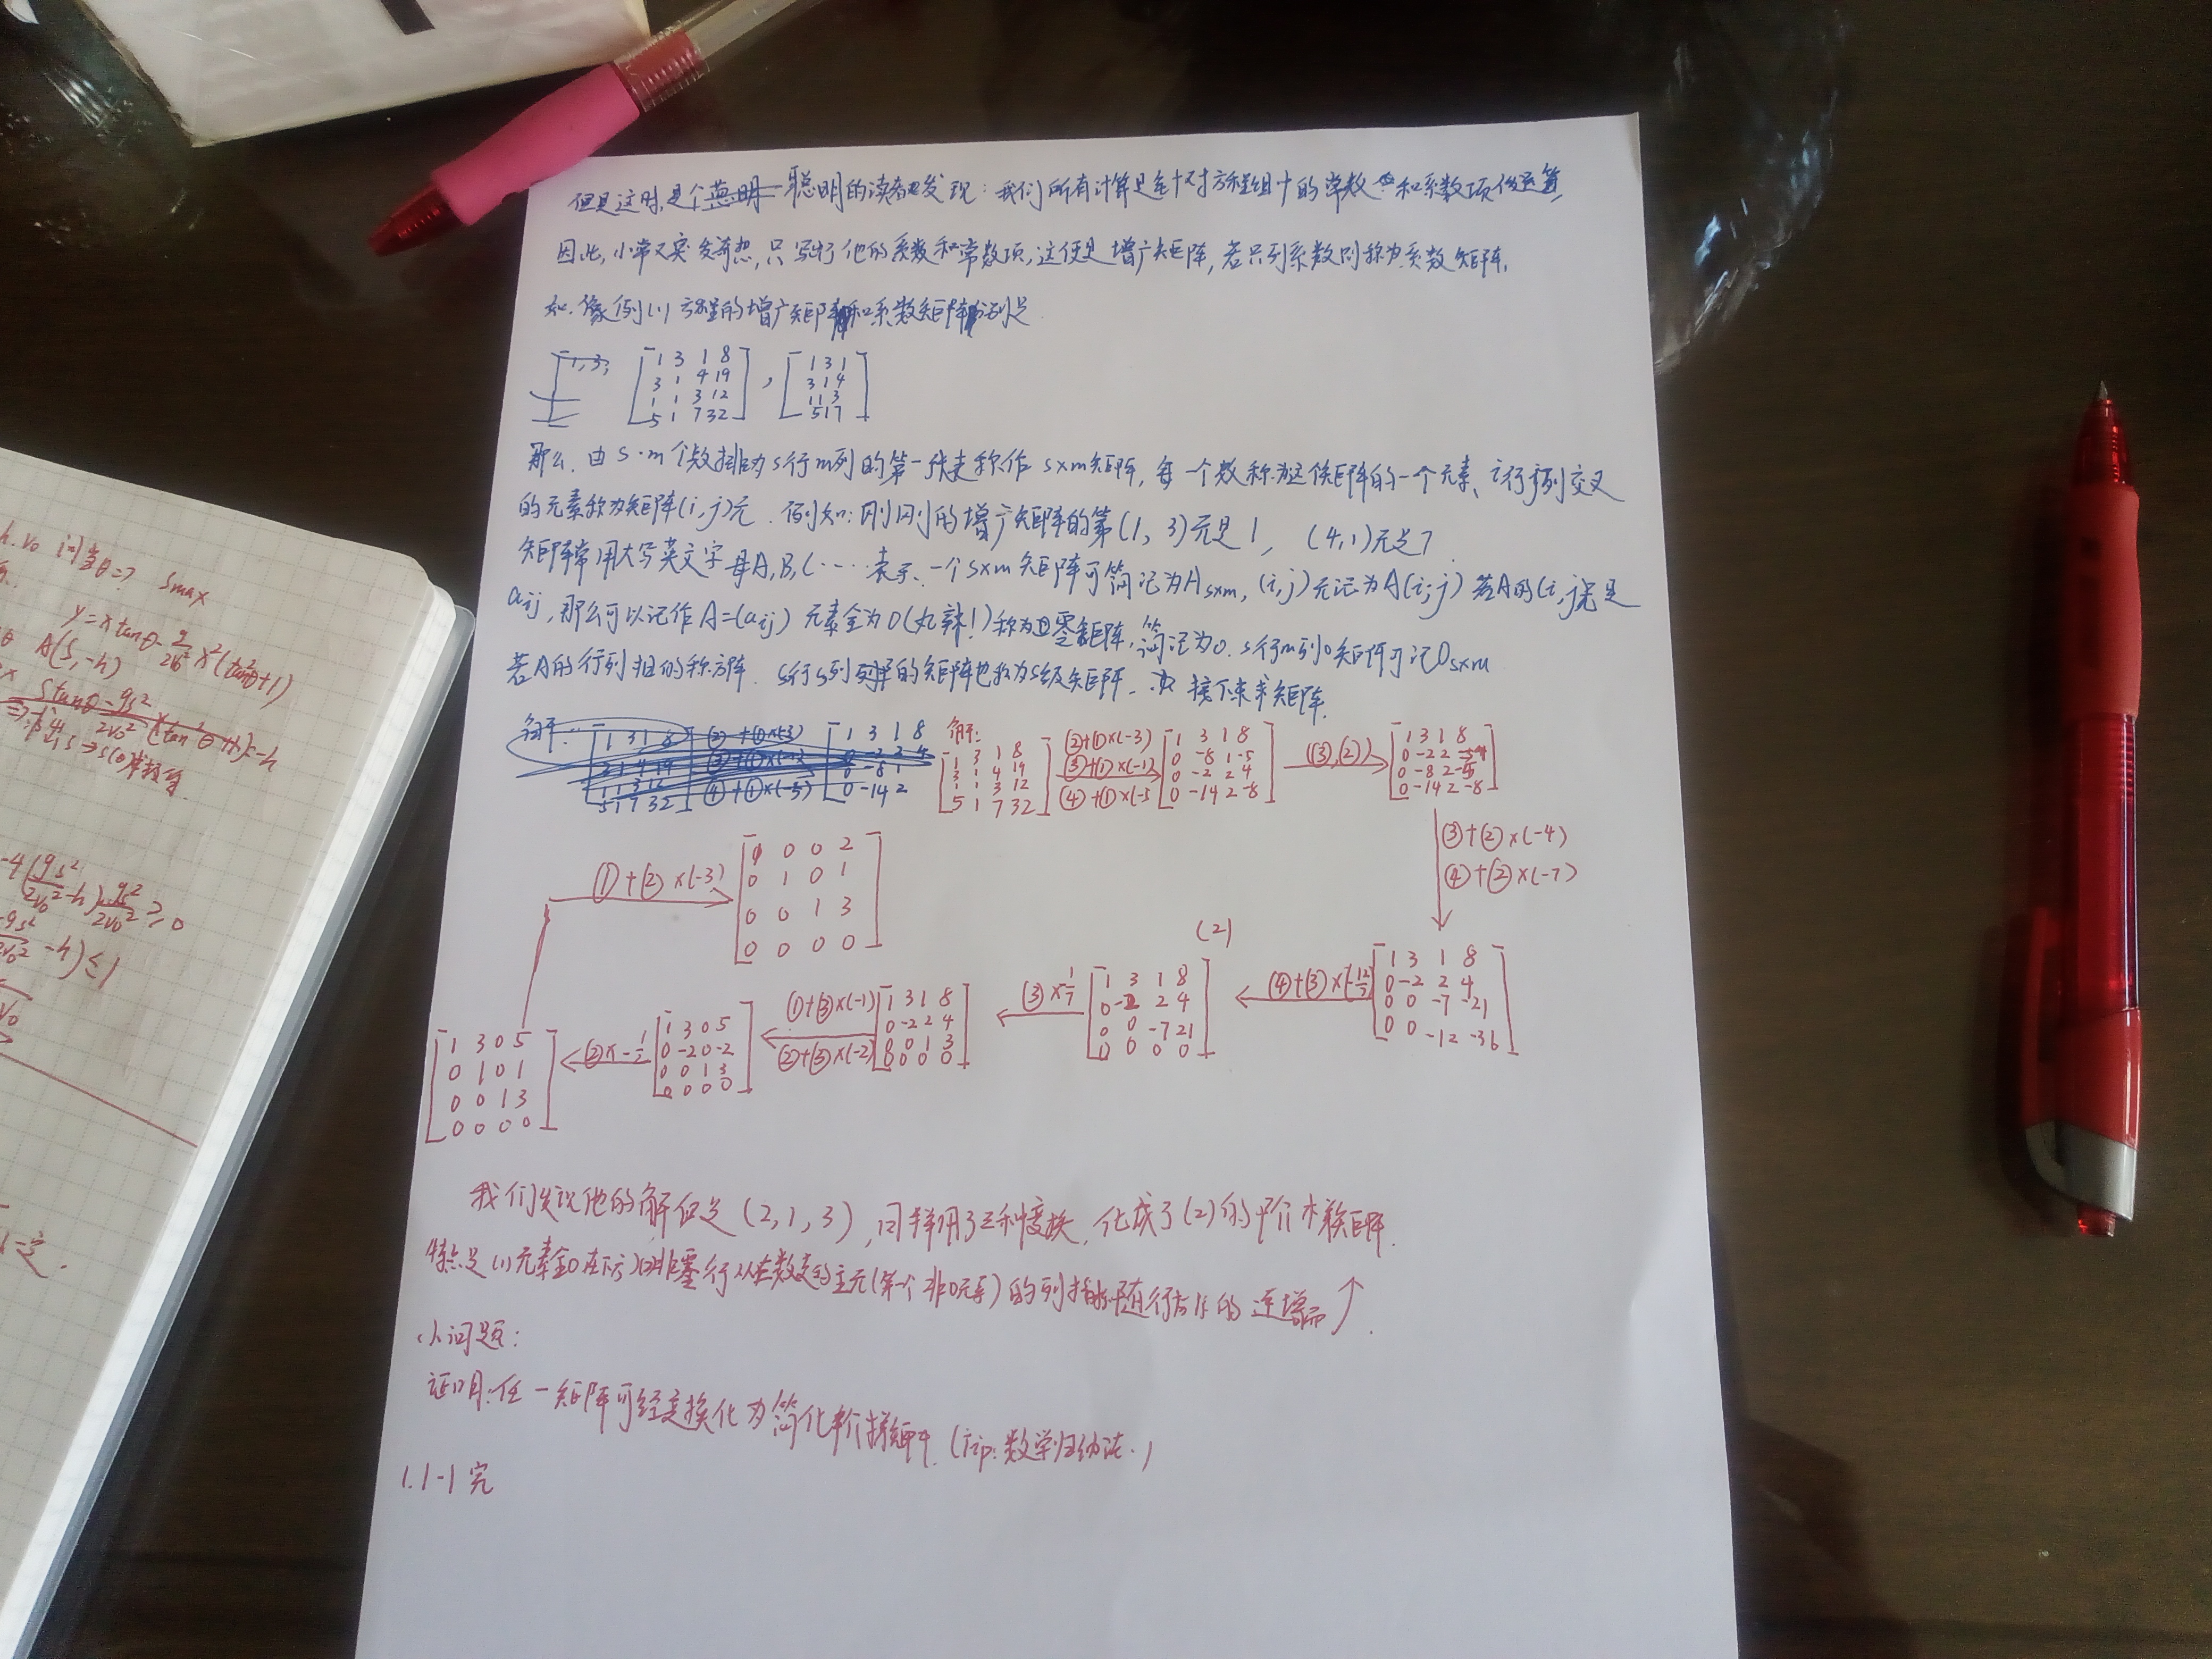 但是这时,是个聪明的读者发现:我们所有计算是针对方程组中的常数和系数项做运算,
因此,小常又突发奇想,只写了他的系数和常数项,这便是增广矩阵,若只列系数则称为系数矩阵.
如.像例(1)方程的增广矩阵和系数矩阵分别是
1 3 1 8
3 1 4 19
1 1 3 12
5 1 7 32
,
1 3 1
3 1 4
1 1 3
5 1 7
那么.由s·m个数排为s行m列的第一张表称作s×m矩阵,每一个数称为这个矩阵的一个元素、i行j列交叉
的元素称为矩阵(i,j)元.例如:刚刚的增广矩阵的第(1,3)元是1,(4,1)元是7
矩阵常用大写英文字母A,B,C……表示、一个s×m矩阵可简记为As×m,(i,j)元记为A(i;j)若A的(i,j)元是
aij,那么可以记作A=(aij)元素全为0(丸辣!)称为零矩阵,简记为0.s行m列0矩阵可记0s×m
若A的行列相的称方阵.s行s列的矩阵也称为s级矩阵.接下来求矩阵.
解:
1 3 1 8
3 1 4 19
1 1 3 12
5 1 7 32
②+①×(-3)
③+①×(-1)
④+①×(-5
1 3 1 8
0 -8 1 -5
0 -2 2 4
0 -14 2 -8
(③,②)
1 3 1 8
0 -2 2
0 -8 2 -5
0 -14 2 -8
③+②×(-4)
④+②×(-7)
1 3 1 8
0 -2 2 4
0 0 -7 -21
0 0 -12 -36
④+③×(-12/7)
(2)
1 3 1 8
0 -2 2 4
0 0 -7 21
0 0 0 0
③×1/7
1 3 1 8
0 -2 2 4
0 0 1 3
0 0 0 0
①+③×(-1)
②+③×(-2)
1 3 0 5
0 -2 0 -2
0 0 1 3
0 0 0 0
②×-1/2
1 3 0 5
0 1 0 1
0 0 1 3
0 0 0 0
①+②×(-3)
1 0 0 2
0 1 0 1
0 0 1 3
0 0 0 0
我们发现他的解但是(2,1,3),同样用了三种变换,化成了(2)的阶梯矩阵.
特点是(1)元素全0在下方(2)非零行从左数起的主元(第一个非0元素)的列指标随行指标的递增而↑.
小问题:
证明:任一矩阵可经变换化为简化阶梯矩阵.(tip:数学归纳法.)
1.1-1完
h.v0 问当θ=? smax
y=x tanθ-g/2v0²x²(tan²θ+1)
A(s,-h)
2v0²
≥0
-h)≤1